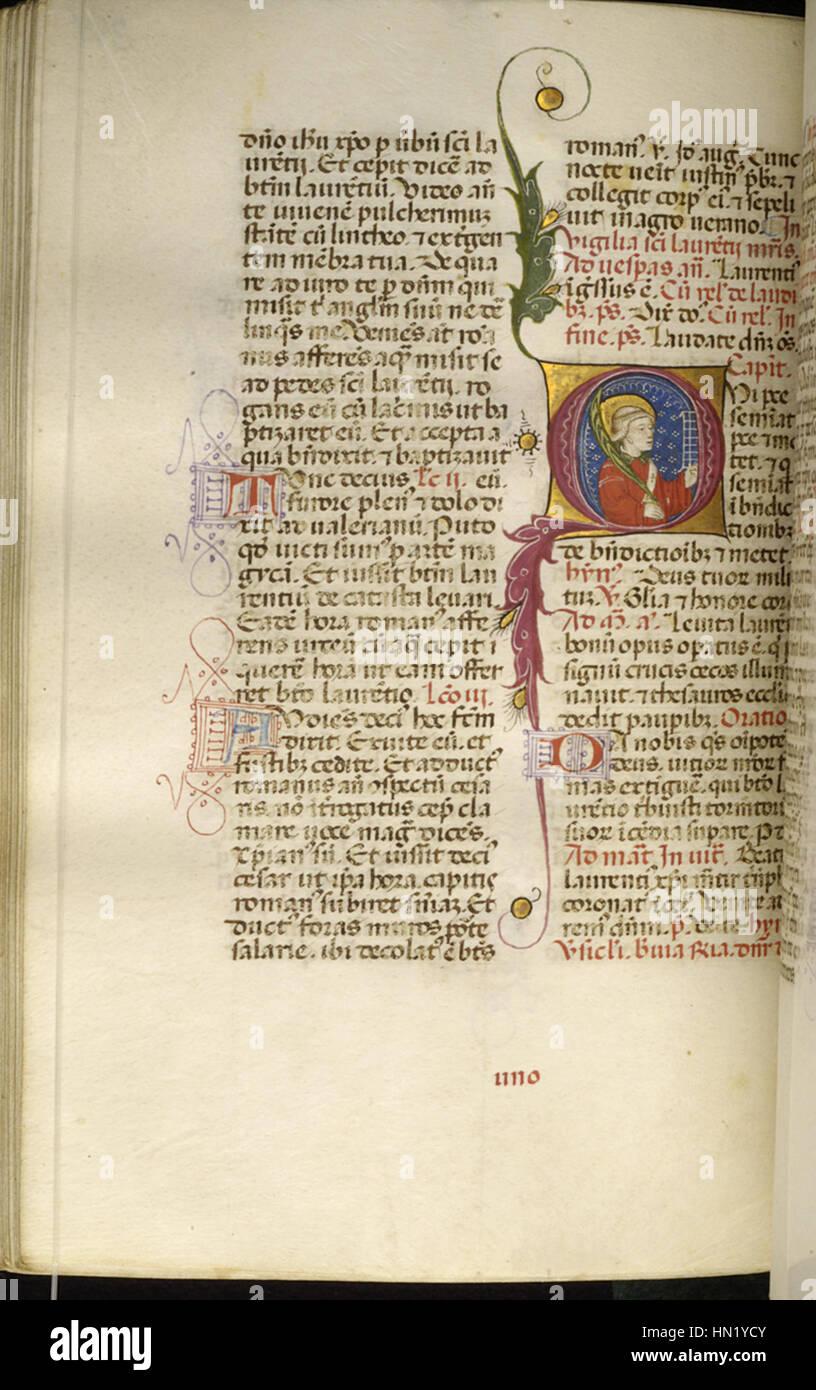 dño ihu xpo p ubū sci la
uretij. Et cepit dicē ad
btm laurētiū. Video añ
te iuuenē pulcherimuz
stātē cū lintheo ⁊ extgen
tem mēbra tua. De qua
re adiuro te p dnm qui
misit t' angłm suū ne de
linqs me. Veniēs at ro
nus afferēs aqz misit se
ad pedes sci laurētij. ro
gans eū cū lacimis ut ba
ptizaret eū. Et accepta a
qua bñdixit. ⁊ baptizauit
Tunc decius Lc ij. eū.
furore plen' ⁊ dolo di
xit ad ualerianū. Puto
qd uicti sum' p artem ma
gicā. Et iussit btm lau
rentiū de catasta leuari.
Eadē hora roman' affe
rens urceū cū aq cepit i
querē horā ut eam offer
ret bto laurētio. Lco iij.
Audies deci' hoc factm
dixit. Exuite eū. et
fustibz cedite. Et aduct'
romanus añ cspectū cesa
ris. nō itrogatus cep cla
mare uoce mag dices.
Xpian' sū. Et iussit deci'
cesar ut ipa hora. capitie
roman' subiret sniaz. Et
duct' foras muros porte
salarie. ibi decolat' ē bts
roman'. v. id aug. Tunc
nocte uenit iustin' pbr. ⁊
collegit corp' ei'. ⁊ sepeli
uit in agro uerano. In
uigilia sci laurētij mris.
Ad uespas añ. Laurenti'
igssus ē. Cū rel' de laudi
bz. ps. Dix' do'. Cū rel'. In
fine. ps. Laudate dnz os.
Capit.
Qui pce
seminat
pce ⁊ me
tet. ⁊ q
seminat
i bñdic
tionibz
de bñdictioibz ⁊ metet
hyn'. Deus tuor mili
tuz. v. Glia ⁊ honore cor
Ad m. a. Leuita lauren
bonū opus opatus ē. q p
signū crucis cecos illum
nauit. ⁊ thesauros eccłie
dedit paupibz. Oratio.
Da nobis qs oipote
deus. uitior nror f
mas extiguē. qui bto l
uretio tbuisti tormtoru
suor icēdia supare. P.
Ad mat. In uit. Beati
laurenti xpi mtir
coronat
rem dnm. p.
Vsicłi.
iiiio
alamy
Image ID: HN1YCY
www.alamy.com